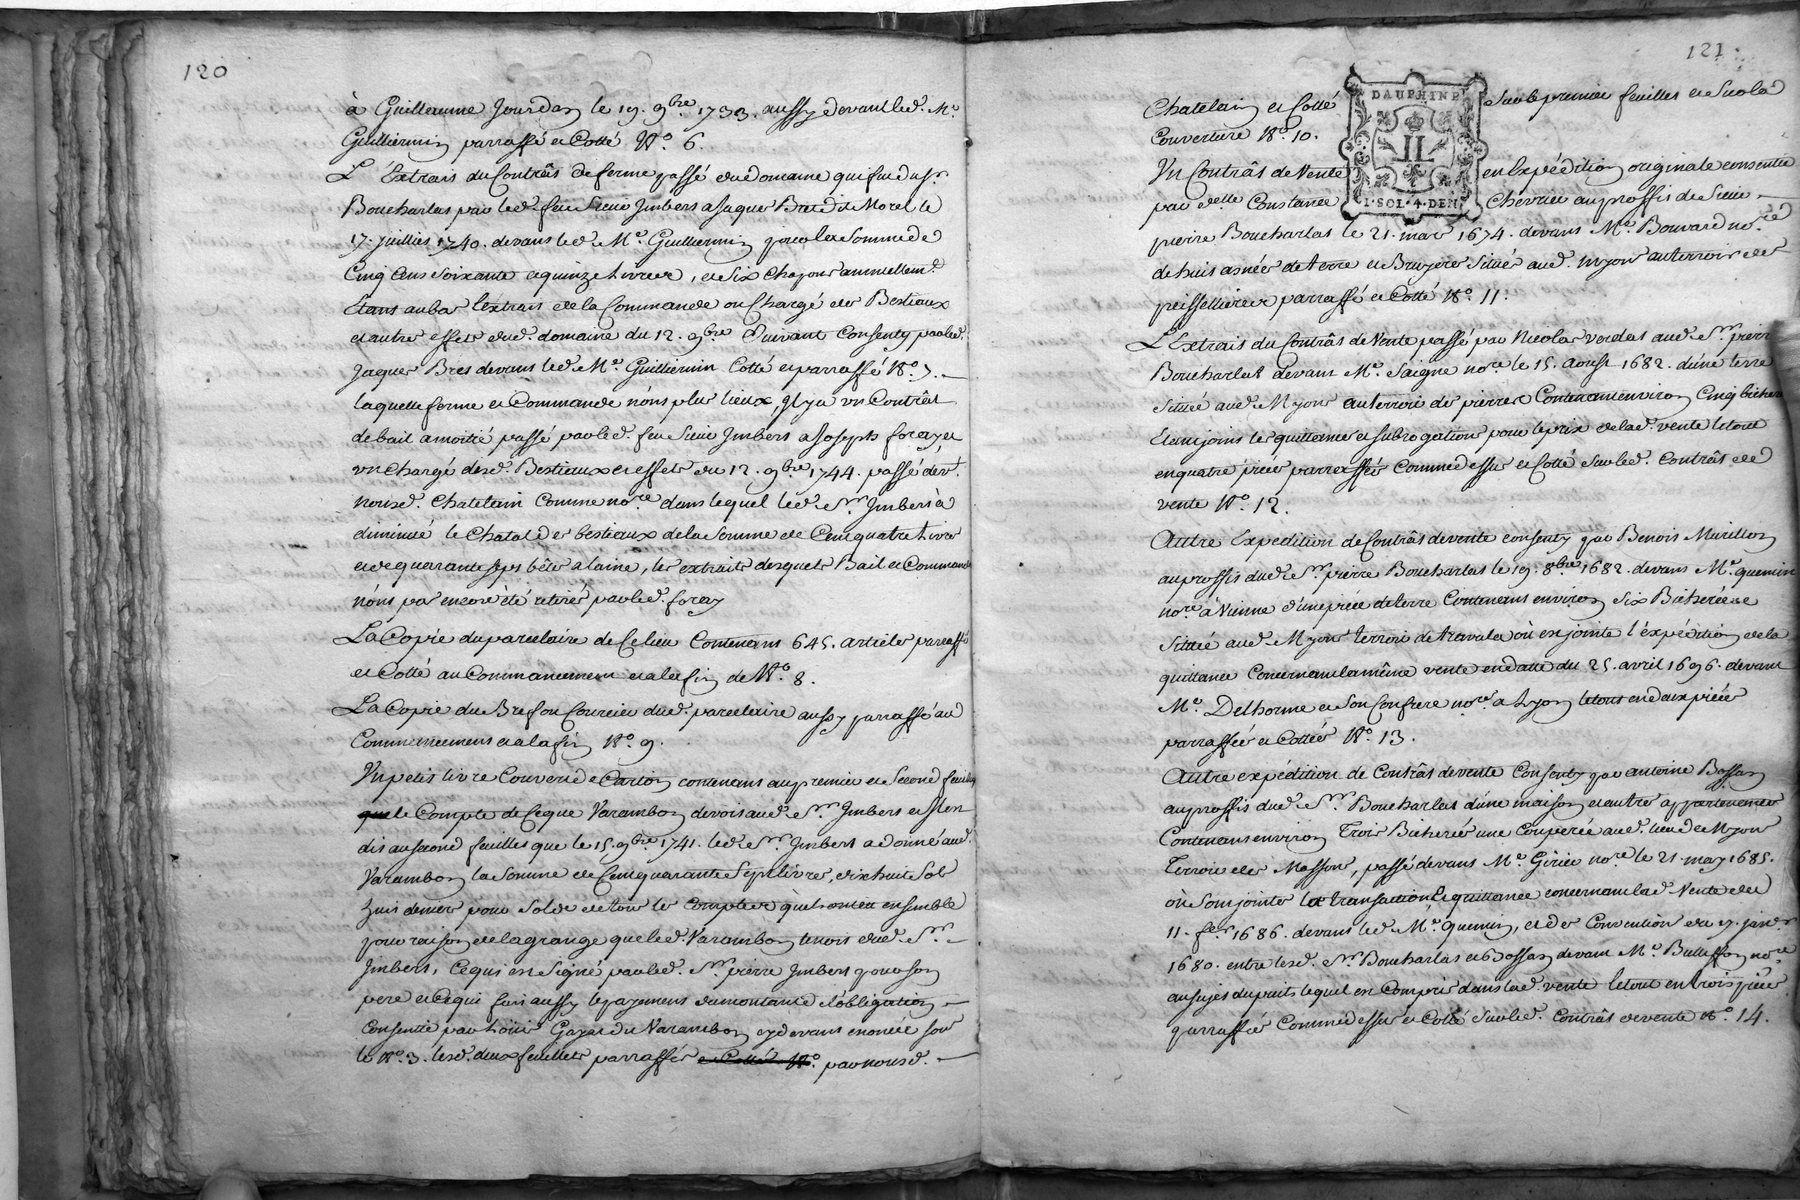 120
à Guilleaume Jourdan le 19. 9bre. 1733. aussy devant led. Me.
Guilliermin parraffé et Cotté No. 6.
L'Extrait du Contrât de ferme passé du domaine qui fut du sr.
Boucharlat par led. feu Sieur Jmbert a Jaques Bret dit Morel le
17. juillies 1740. devant led. Me. Guilliermin pour la Somme de
Cinq Cens Soixante et quinze Livres, et Six Chapons annuellemt.
Etant au bas l'extrait de la Commande ou Chargé des Bestiaux
et autres effets dud. domaine du 12. 9bre Suivant Consenty par led.
Jaques Bres devant led. Me. Guilliermin Cotté et parraffé No. 7.
laquelle ferme et Commande n'ons plus lieux, Jl y a vn Contrât
de bail a moitié passé par led. feu Sieur Jmbert a Joseph foray et
vn Chargé desd. Bestiaux et effets du 12. 9bre 1744. passé devt.
nousd. Chatelain Comme nore. dans lequel led. Sr. Jmbert a
diminué le Chatal des bestiaux de la Somme de Cent quatre Livres
et de quarante sept bêtes a laine, les extraits desquels Bail et Commande
n'ons pas encore été retirés par led. foray
La Copie du parcelaire de Ce lieu Contenant 645. articles parraffé
et Cotté au Commancement et a la fin de No. 8.
La Copie du Bref ou Courcier dud. parcelaire aussy parraffé au
Commencement et a la fin No. 9.
Vn petit livre Couvert de Carton contenant au premier et Second feuillet
que le Compte de Ce que Varambon devoit aud. Sr. Jmbert et Jl en
dit au second feuilles que le 15. 9bre 1741. led. Sr. Jmbert a donné aud.
Varambon la Somme de Cent quarante Sept livres, dix huit Sols
huit deniers pour Solde de tous les Comptes qu'els ensemble
pour raison de la grange que led. Varambon tenoit dud. Sr.
Jmbert, Ce qui est Signé par led. Sr. pierre Jmbert pour son
pere et Ce qui fait aussy le payement du montant de l'obligation
Consentie par Gaspard Varambon cy devant enoncée sous
le No. 3. lesd. deux feuillets parraffés et Cotté No. par nousd.
121
Chatelain et Cotté Sur le premier feuilles et Sur la
Couverture No. 10.
DAUPHINE
1·SOL·4·DEN
Vn Contrât de Vente en Expédition originale consentie
par delle Constance Chevrier au proffit de Sieur
pierre Boucharlat le 21. mars 1674. devant Me. Bouvard nore.
de huit asnées de terre et Bruyere Situé aud. Myons au terroir des
peissellieres parraffé et Cotté No. 11.
L'Extrait du Contrât de Vente passé par Nicolas verdat aud. Sr. pierre
Boucharlat devant Me. Saigne nore le 15. aoust 1682. d'une terre
Située aud. Myons au terroir de pierres Contenant environ Cinq bicherées
Etant joint les quittances et subrogation pour le prix de lad. vente le tout
en quatre piéces parraffées Comme dessus et Cotté Sur led. Contrât de
vente No. 12.
Autre Expedition de Contrât de vente consenty par Benoit Murillon
au proffit dud. Sr. pierre Boucharlat le 19. 8bre 1682. devant Me. quemin
nore. à Vienne d'une piéce de terre Contenant environ Six Bicherées
Située aud. Myons terroir de travala où est jointe l'expédition de la
quittance Concernant la même vente en datte du 25. avril 1696. devant
Me. Delhorme et Son Confrere nores. a Lyon le tout en deux piéces
parraffées et Cottées No. 13.
Autre expédition de Contrât de vente Consenty par antoine Bossan
au proffit dud. Sr. Boucharlat d'une maison et autres appartenances
Contenant environ Trois Bicherées une Couperée aud. lieu de Myons
Terroir des Massons, passé devant Me. Girier nore. le 21. may 1685.
où Sont jointes la transaction & quittance concernant lad. Vente du
11. fer. 1686. devant led. Me. quemin, et des Convention du 17. janvr.
1680. entre lesd. Srs. Boucharlat et Bossan devant Me. Buttiffon nore
au sujet du puits lequel est Compris dans lad. vente le tout en trois piéces
parraffées Comme dessus et Cotté Sur led. Contrât de vente No. 14.